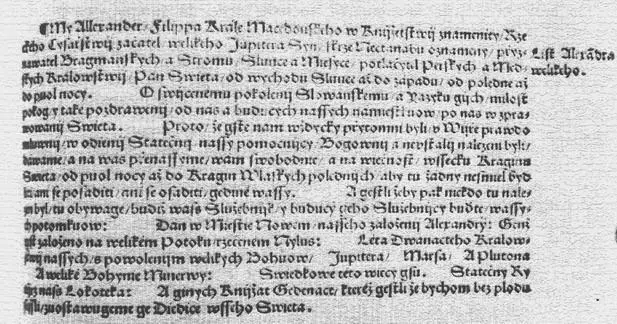 ¶My Allexander / Filippa Krále Macedonského w Knijžetstwij znamenitý / Rze
ckého Cysařstwij začátel / welikého Jupitera Syn / skrze Nectanaba oznámený / přiz
nawatel Bragmanských a Stromů / Slunce a Miesyce / potlačytel Perských a Med
ských Králowstwij / Pán Swieta / od wýchodu Slunce až do západu / od poledne až
do půl nocy. Oswijcenému pokolenij Slowanskému / a Jazyku gich / milost
pokog / y také pozdrawenij / od nás a budúcých nassých námiestkuow / po nás w zpra-
wowánij Swieta. Proto / že gste nám wždycky přijtomni byli / w Wijře prawdo
mluwnij / w odienij Statečnij / nassy pomocnijcy / Bogownij a neustalij nalezeni byli /
dáwáme / a na wás přenássýme / wám swobodnie / a na wiečnost / wssecku Kraginu
Swieta / od půl nocy až do Kragin Wlaských poledních / aby tu žádný nesmiel býd
ani se posaditi / ani se osaditi / gediné wassy. A gestli žeby pak niekdo tu nale-
zen byl / tu obýwage / budiž wáss Služebnijk / y budúcy geho Služebnijcy buďte / wassy-
ch potomkuow: Dán w Miestie Nowém / nasseho založenij Alexandrij: Genž
gest založeno na welikém Potoku / rzeceném Nylus: Léta Dwanáctého Králow-
stwij nassých / s powolenijm welikých Bohuow / Jupitera / Marsa / A Plutona
A weliké Bohynie Minerwy: Swiedkowé této wiecy gsú. Statečný Ry
tijř náss Lokotéka: A giných Knijžat Gedenáct / kteréž gestli že bychom bez plodu
sessli / zuostawugeme ge Diedice wsseho Swieta.
List Alexādra
welikého.